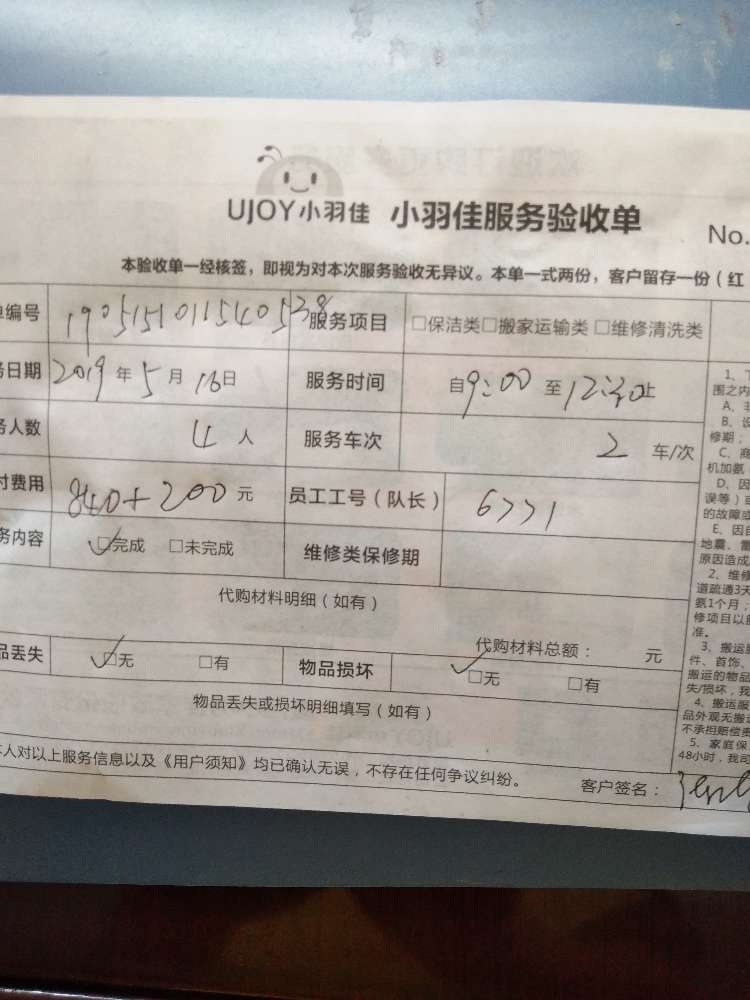 UJOY小羽佳 小羽佳服务验收单
No.
本验收单一经核签，即视为对本次服务验收无异议。本单一式两份，客户留存一份（红
单编号 190515101154053 服务项目 □保洁类□搬家运输类 □维修清洗类
务日期 2019 年 5 月 16 日 服务时间 自 9:00 至 12:30 止
务人数 4 人 服务车次 2 车/次
付费用 840+200 元 员工工号（队长） 6771
务内容 ☑完成 □未完成 维修类保修期
代购材料明细（如有）
代购材料总额： 元
品丢失 ☑无 □有 物品损坏 ☑无 □有
物品丢失或损坏明细填写（如有）
本人对以上服务信息以及《用户须知》均已确认无误，不存在任何争议纠纷。
客户签名：
1、
围之内
A、
B、设
修期；
C、商
机加氨
D、因
误等）或
的故障或
E、因自
地震、雷
原因造成
2、维修
道疏通3天
氨1个月；
修项目以
准。
3、搬运
件、首饰、
搬运的物品
失/损坏，我
4、搬运服
品外观无搬
不承担赔偿责
5、家庭保
48小时，我司